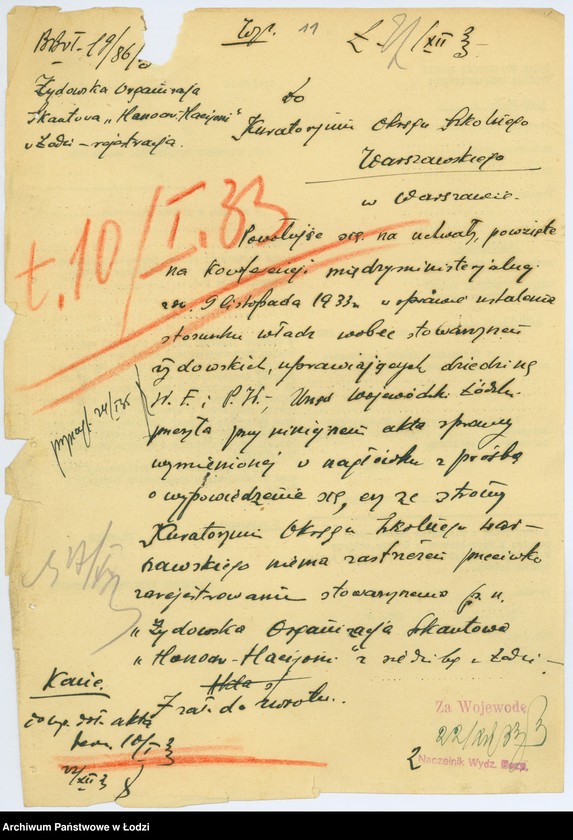 11
Żydowska Organizacja
Skautowa „Hanoar-Hacijoni”
w Łodzi – rejestracja.
Do
Kuratorjum Okręgu Szkolnego
Warszawskiego
w Warszawie.
t. 10/I. 33
Powołując się na uchwałę, powziętą
na konferencji międzyministerjalnej
dn. 9 listopada 1933 r. w sprawie ustalenia
stosunku władz wobec stowarzyszeń
żydowskich, uprawiających dziedzinę
W. F. i P. W., Urząd Wojewódzki Łódzki
przesyła przy niniejszem akta sprawy
wymienionej w nagłówku z prośbą
o wypowiedzenie się, czy ze strony
Kuratorjum Okręgu Szkolnego War-
szawskiego niema zastrzeżeń przeciwko
zarejestrowaniu stowarzyszenia p. n.
„Żydowska Organizacja Skautowa
„Hanoar-Hacijoni” z siedzibą w Łodzi –
Zał. do zwrotu.
akta
Za Wojewodę
22/XII/33
Naczelnik Wydz.
2